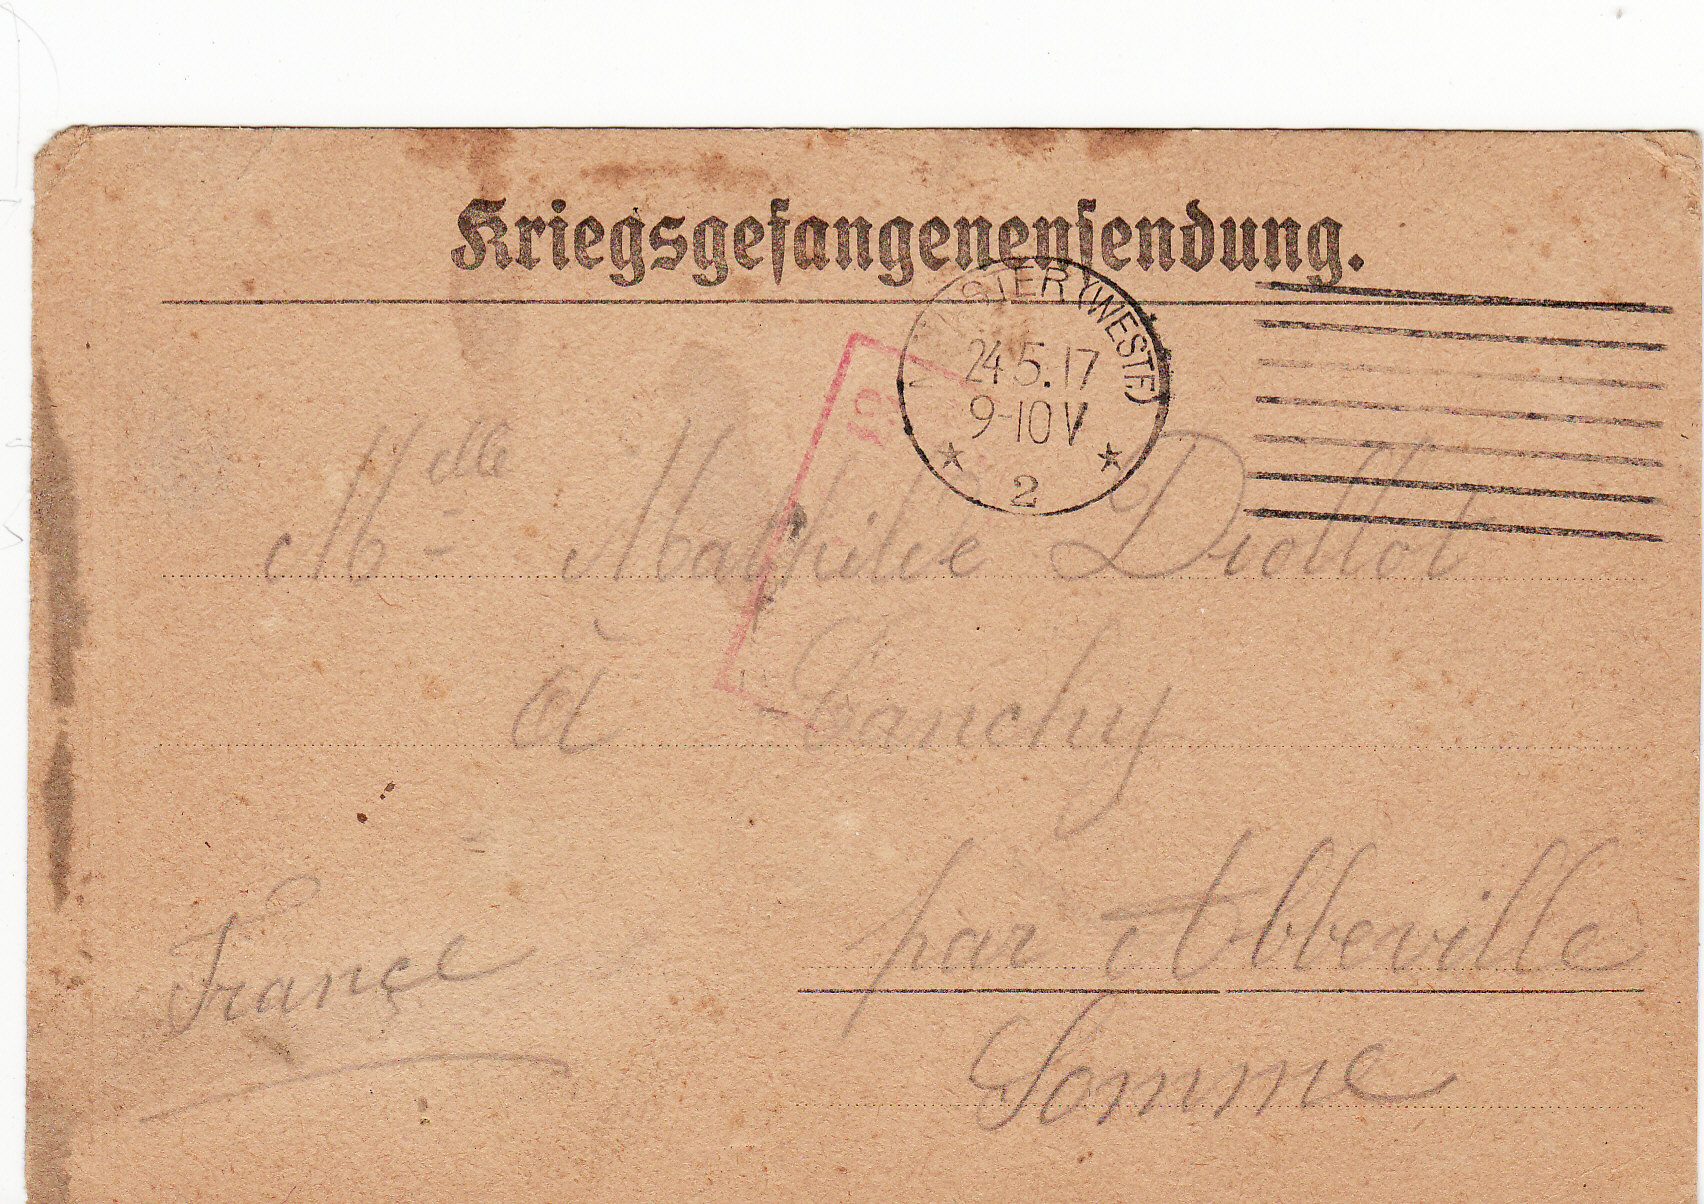 Kriegsgefangenensendung.
MÜNSTER (WESTF.)
24.5.17
9-10 V
2
Melle Mathilde Diottot
à Canchy
par Abbeville
Françe
Somme